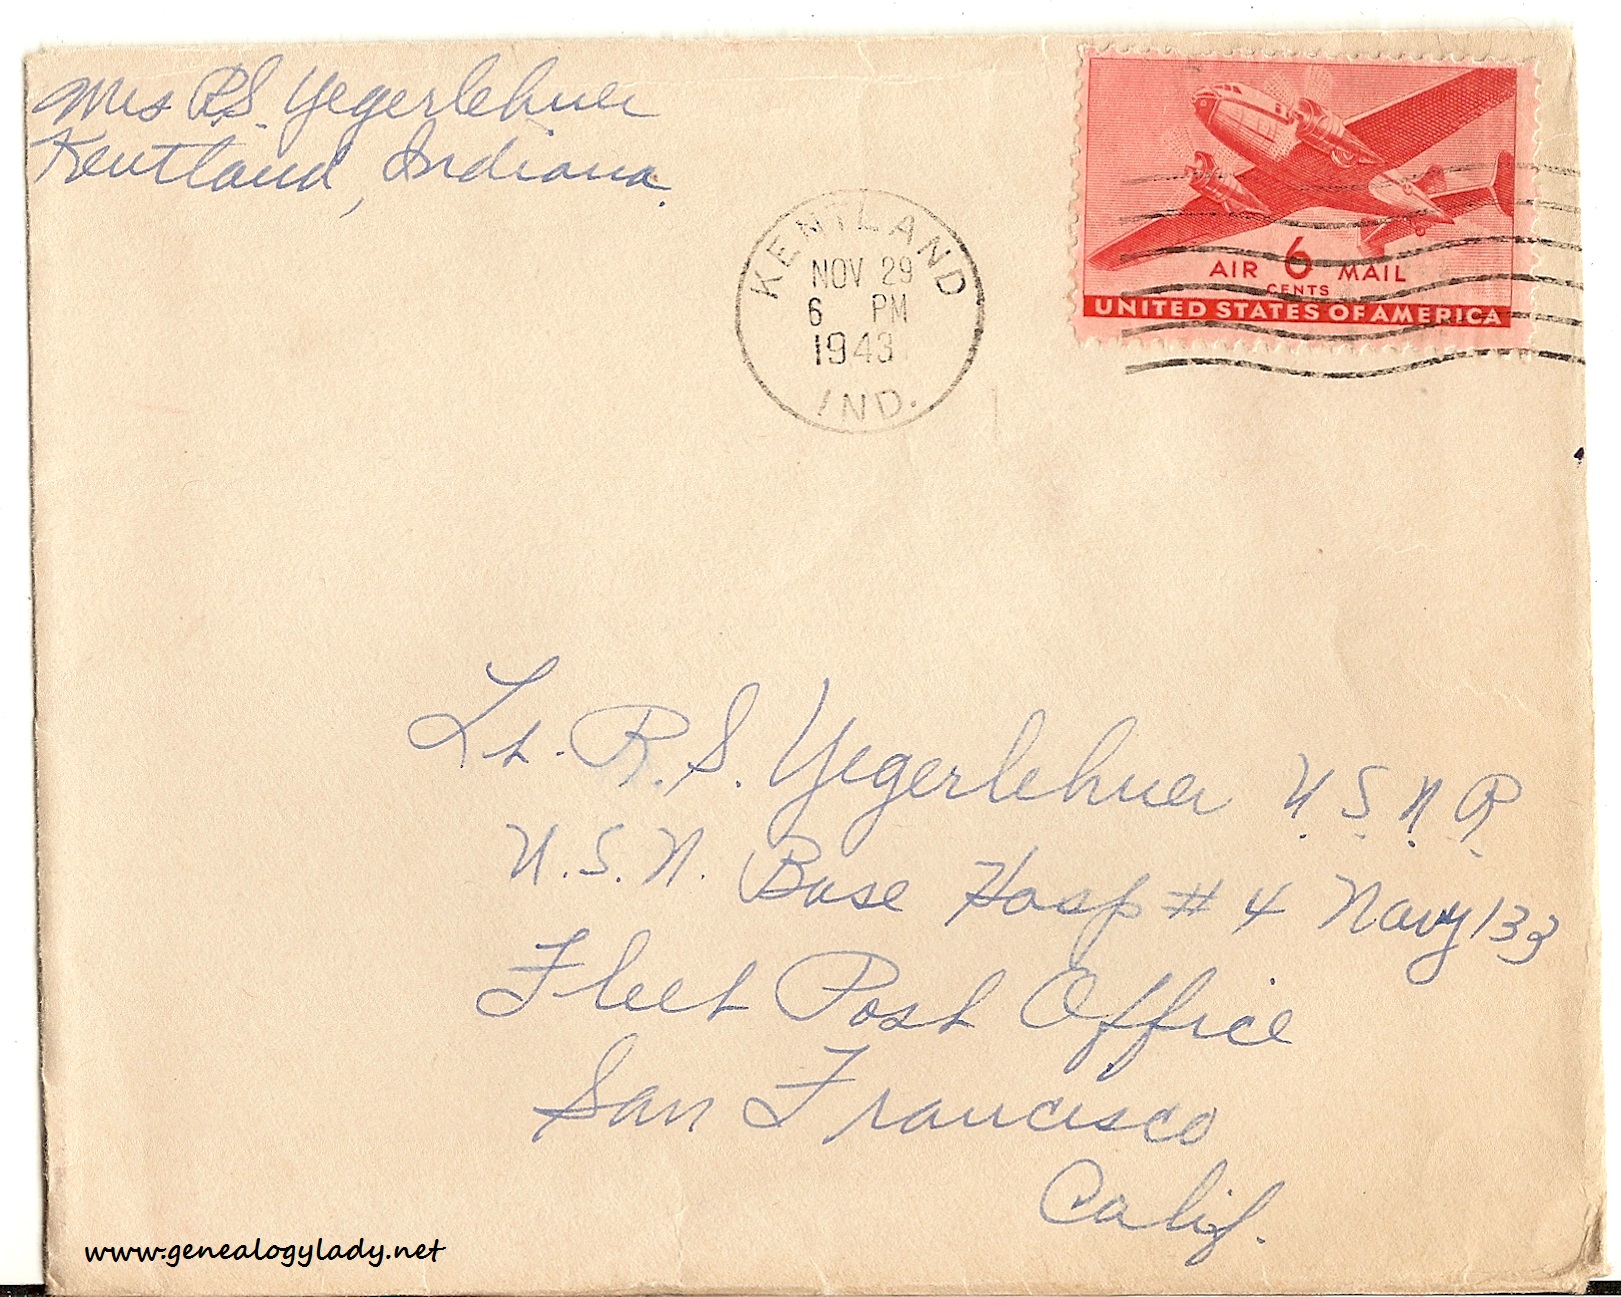 Mrs R.S. Yegerlehner
Kentland, Indiana.
KENTLAND
NOV 29
6 PM
1943
IND.
AIR 6 MAIL
CENTS
UNITED STATES OF AMERICA
Lt. R.S. Yegerlehner U.S.N.R.
U.S.N. Base Hosp # 4 Navy 133
Fleet Post Office
San Francisco
Calif.
www.genealogylady.net